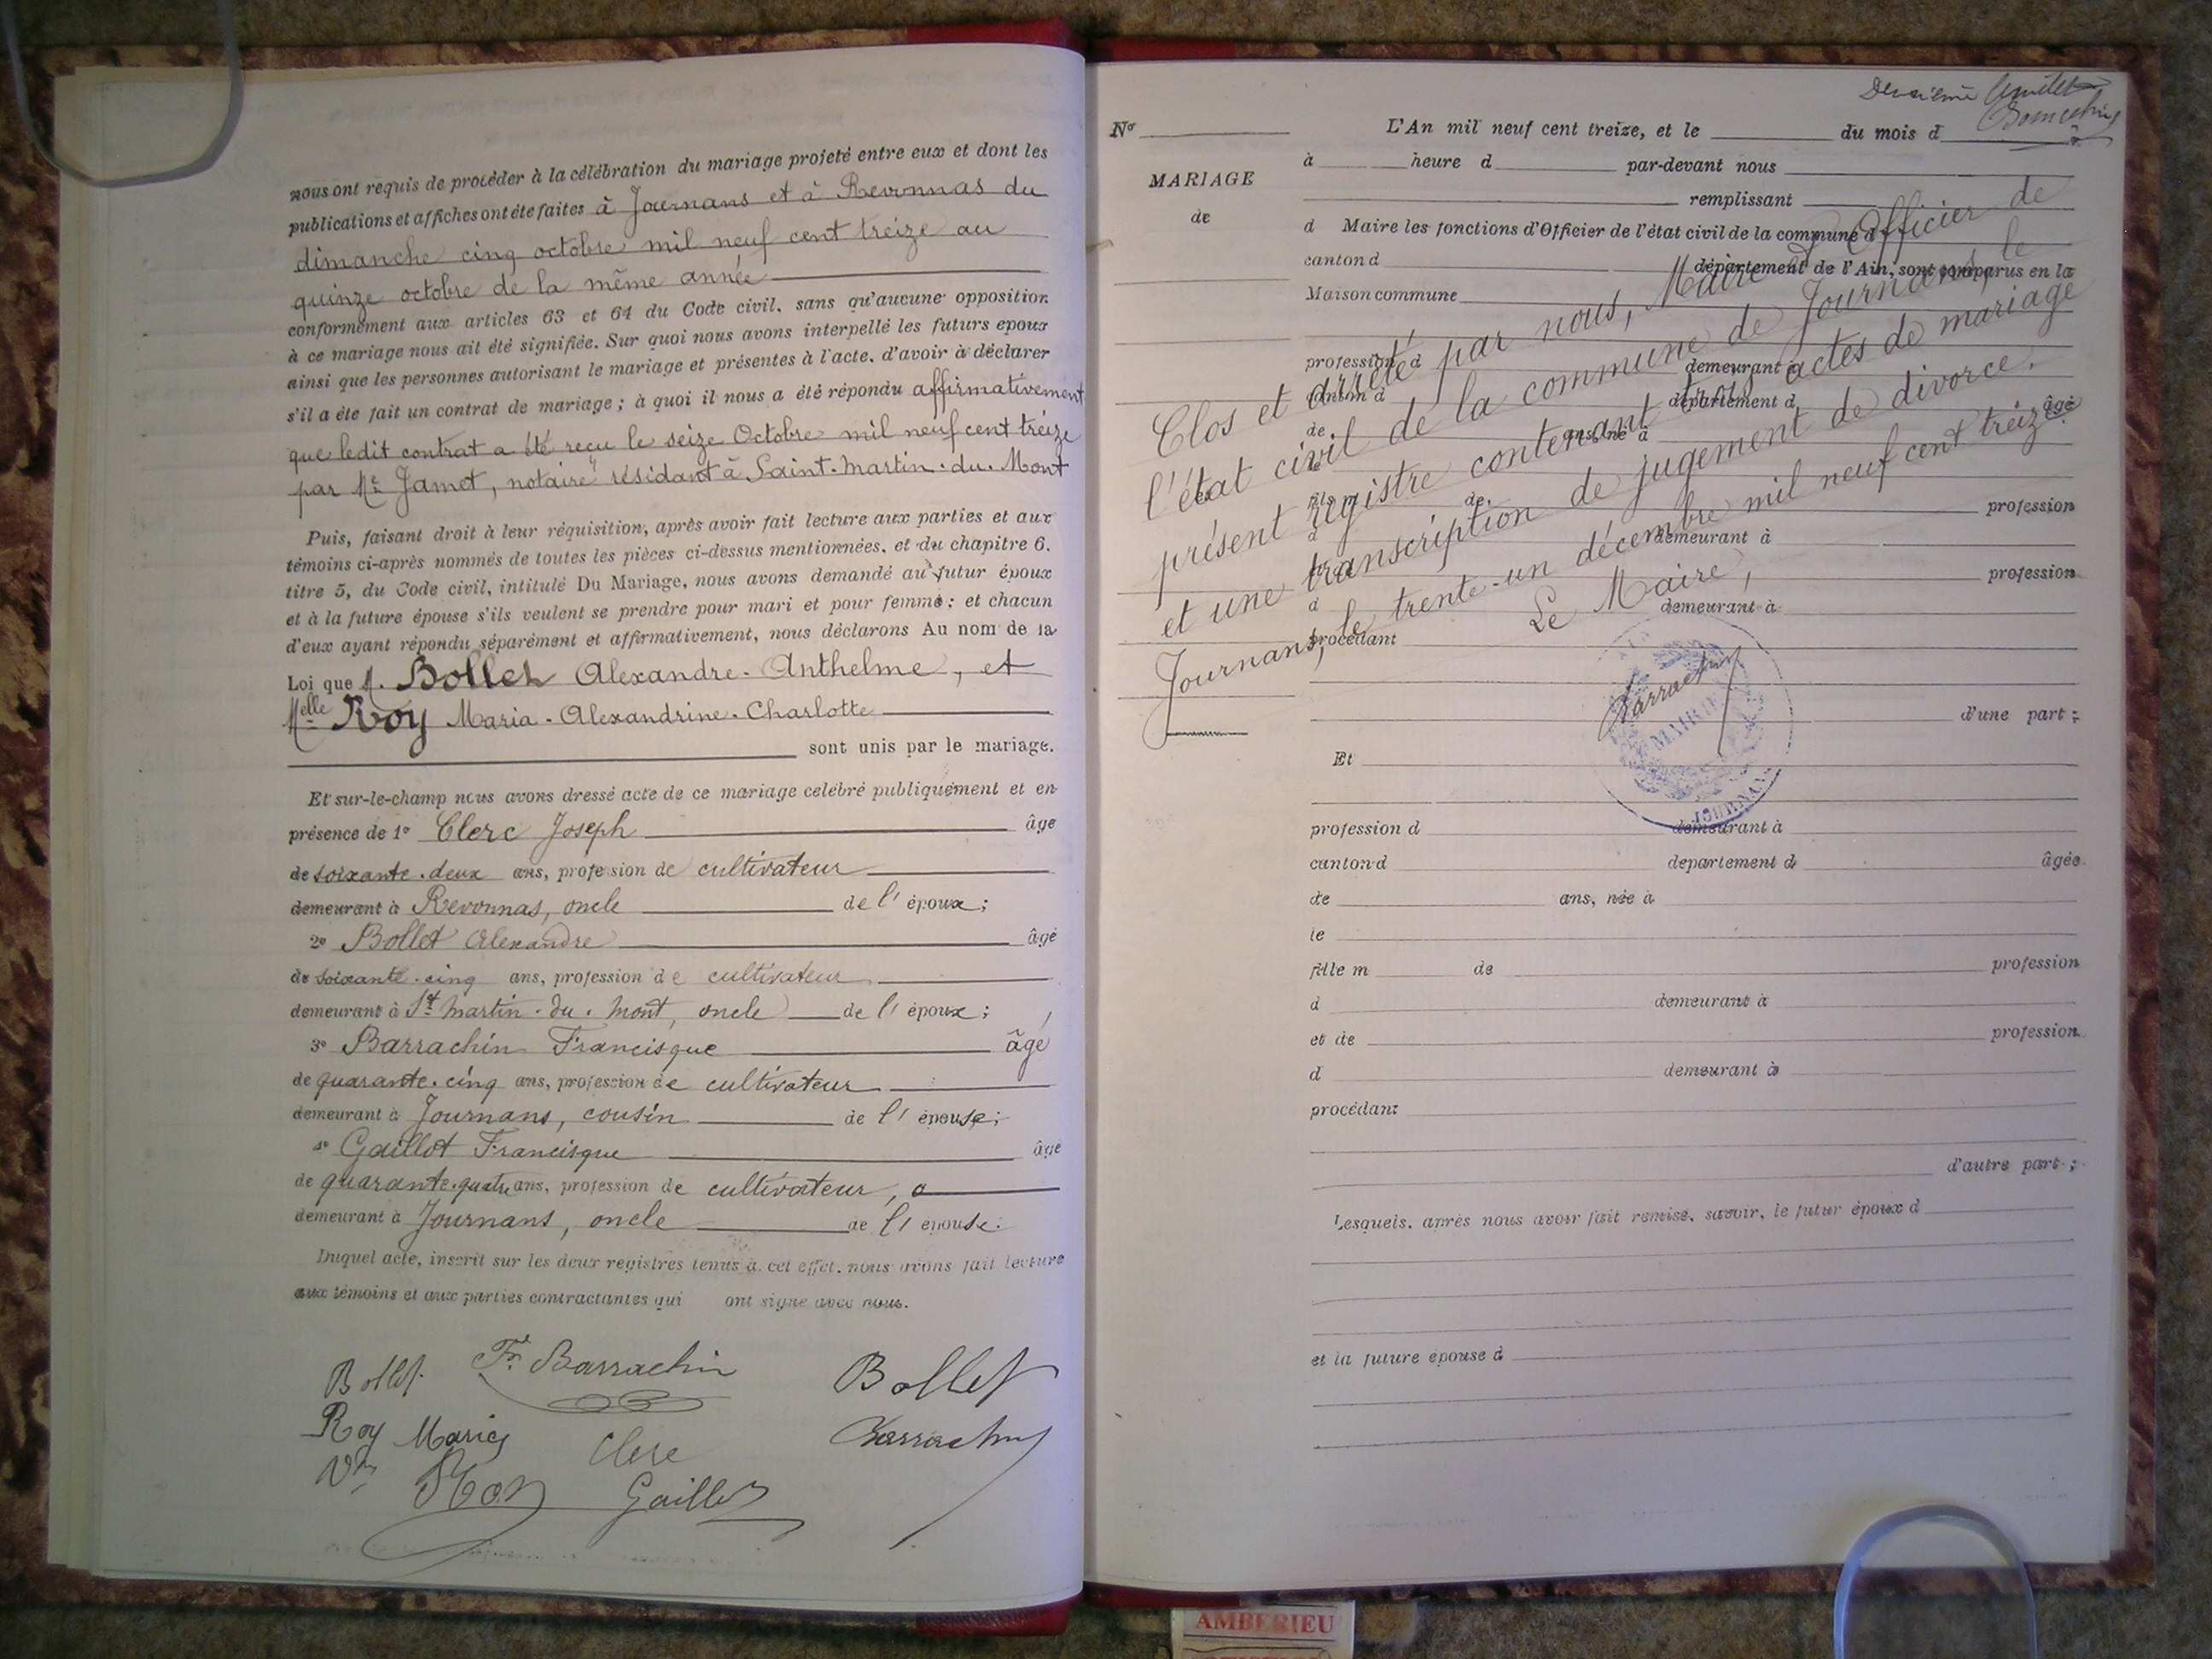 nous ont requis de procéder à la célébration du mariage projeté entre eux et dont les
publications et affiches ont été faites à Journans et à Revonnas du
dimanche cinq octobre mil neuf cent treize au
quinze octobre de la même année
conformément aux articles 63 et 64 du Code civil, sans qu'aucune opposition
à ce mariage nous ait été signifiée. Sur quoi nous avons interpellé les futurs epoux
ainsi que les personnes autorisant le mariage et présentes à l'acte, d'avoir à déclarer
s'il a été fait un contrat de mariage ; à quoi il nous a été répondu affirmativement
que ledit contrat a été reçu le seize Octobre mil neuf cent treize
par Me Jamet, notaire résidant à Saint-Martin-du-Mont
Puis, faisant droit à leur réquisition, après avoir fait lecture aux parties et aux
témoins ci-après nommés de toutes les pièces ci-dessus mentionnées, et du chapitre 6,
titre 5, du Code civil, intitulé Du Mariage, nous avons demandé au futur époux
et à la future épouse s'ils veulent se prendre pour mari et pour femme ; et chacun
d'eux ayant répondu séparément et affirmativement, nous déclarons Au nom de la
Loi que M. Bollet Alexandre-Anthelme, et
Melle Roy Maria-Alexandrine-Charlotte
sont unis par le mariage.
Et sur-le-champ nous avons dressé acte de ce mariage célébré publiquement et en
présence de 1° Clerc Joseph âge
de soixante-deux ans, profession de cultivateur
demeurant à Revonnas, oncle de l'époux ;
2° Bollet Alexandre âgé
de soixante-cinq ans, profession de cultivateur
demeurant à St Martin-du-Mont, oncle de l'époux ;
3° Barrachin Francisque âgé
de quarante-cinq ans, profession de cultivateur
demeurant à Journans, cousin de l'épouse ;
4° Gaillot Francisque âgé
de quarante-quatre ans, profession de cultivateur,
demeurant à Journans, oncle de l'épouse.
Duquel acte, inscrit sur les deux registres tenus à cet effet, nous avons fait lecture
aux témoins et aux parties contractantes qui ont signé avec nous.
Bollet Fr Barrachin Bollet
Roy Maria Clerc Barrachin
Ve Roy Gaillot
Deuxième feuillet
Barrachin
N° L'An mil neuf cent treize, et le du mois d
à heure d par-devant nous
MARIAGE
de
remplissant
d Maire les fonctions d'Officier de l'état civil de la commune d
canton d département de l'Ain, sont comparus en la
Maison commune
profession d demeurant à
canton d département d âgé
de ans, né à
le
fils m de profession
d demeurant à
et de profession
d demeurant à
procédant
Clos et arrêté par nous, Maire et Officier de
l'état civil de la commune de Journans, le
présent registre contenant trois actes de mariage
et une transcription de jugement de divorce.
Journans, le trente-un décembre mil neuf cent treize
Le Maire,
Barrachin
MAIRIE
JOURNANS
d'une part ;
Et
profession d demeurant à
canton d département d âgée
de ans, née à
le
fille m de profession
d demeurant à
et de profession
d demeurant à
procédant
d'autre part ;
Lesquels, après nous avoir fait remise, savoir, le futur époux d
et la future épouse d
AMBERIEU